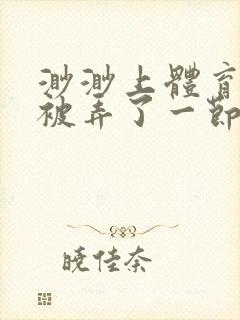 渺渺上體育
被弄了一節
曉佳奈